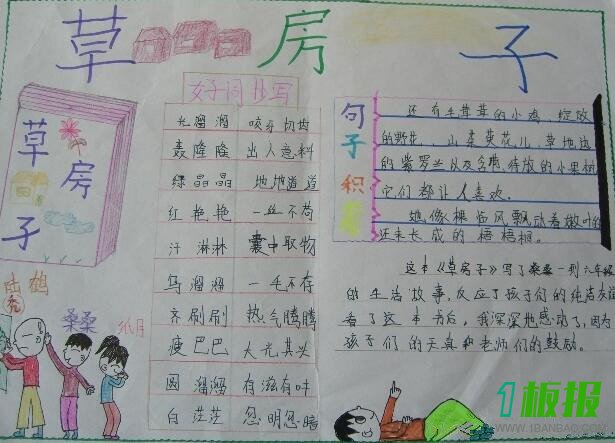 草房子
草房子
陆鹤
秃
桑桑
纸月
好词书写
光溜溜 咬牙切齿
轰隆隆 出人意料
绿晶晶 地地道道
红艳艳 一丝不苟
汗淋淋 囊中取物
乌溜溜 一毛不存
齐刷刷 热气腾腾
疲巴巴 大光其火
圆溜溜 有滋有味
白茫茫 忽明忽暗
句子积
还有毛茸茸的小鸡,绽放
的野花,山桑黄花儿,草地边
的紫罗兰以及含苞待放的小果树
它们都让人喜欢。
她像棵临风飘动着嫩叶的
还未长成的梧桐树。
这本《草房子》写了桑桑一到六年级
的生活故事,反应了孩子们的纯洁
看了这本书后,我深深地感动了,因为
孩子们的天真和老师们的鼓励。
1板报
WWW.1BANBAO.COM